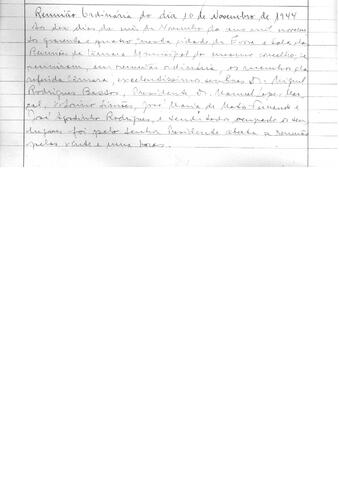 Reunião Ordinária do dia 10 de Novembro de 1944
Aos dez dias do mês de Novembro do ano mil novecen
tos quarenta e quatro, nesta cidade de Évora e Sala da
Reunião da Câmara Municipal do mesmo concelho, se
reuniram, em reunião ordinária, os membros da
referida Câmara, excelentíssimo senhores Dr. Miguel
Rodrigues Bastos, Presidente Dr. Manuel Lopes Mar
çal, Simões, José Maria de Mato e
José Agostinho Rodrigues, e sendo todos ocupado os seus
lugares foi pelo Senhor Presidente aberta a reunião
pelas vinte e uma horas.